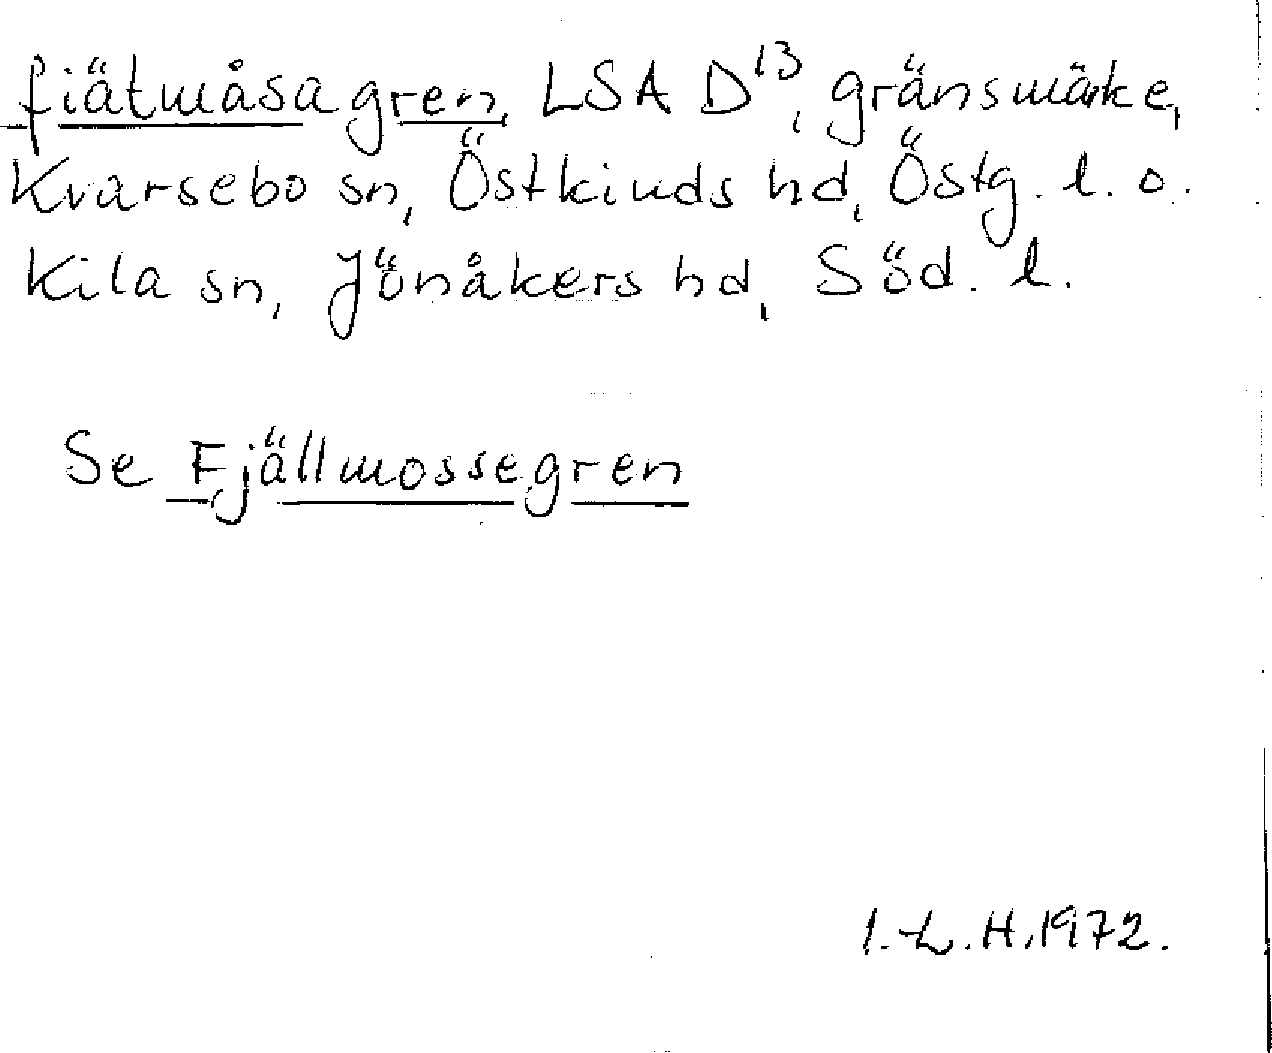 fiätmåsagren, LSA D¹³, gränsmärke,
Kvarsebo sn, Östkinds hd, Östg. l. o.
Kila sn, Jönåkers hd, Söd. l.
Se Fjällmossegren
I.-L. H. 1972.